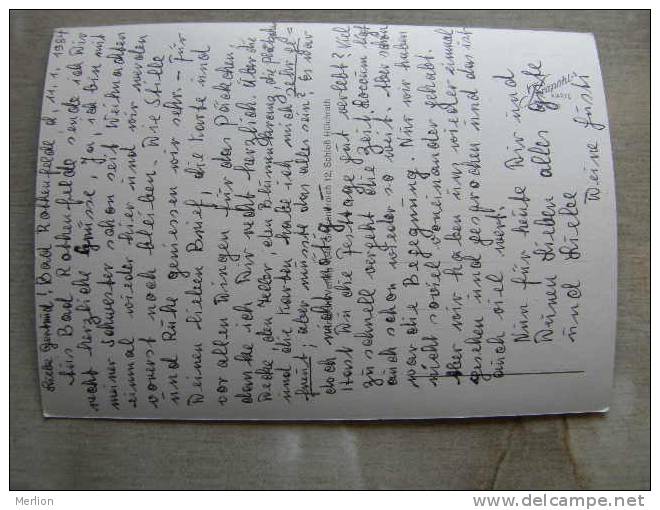 Liebe Gertrud! Bad Rothenfelde, d. 11.1.1984
Bad Rothenfelde sende ich Dir
recht herzliche Grüsse. Ja, ich bin mit
meiner Schwester schon seit Weihnachten
einmal wieder hier und wir werden
vorerst noch bleiben. Die Stille
und Ruhe geniessen wir sehr. - Für
Deinen lieben Brief, die Karte und
vor allen Dingen für das Päckchen,
danke ich Dir recht herzlich. Über die
Decke, den
und die Karten habe ich mich sehr ge=
freut; aber müsste das alles sein? Es war
doch nicht nötig. -
12, Schloß Hülchrath
Hast Du die Festtage gut verlebt? Viel
zu schnell vergeht die Zeit,
auch schon wieder so weit. Aber schön
war die Begegnung. Nur wir haben
nicht soviel voneinander gehabt.
Aber wir haben uns wieder einmal
gesehen und gesprochen und das ist
auch viel wert.
Nun für heute Dir und
Deinen Lieben alles Gute
und Liebe
Deine
KARTE
Merlion
www.delcampe.net